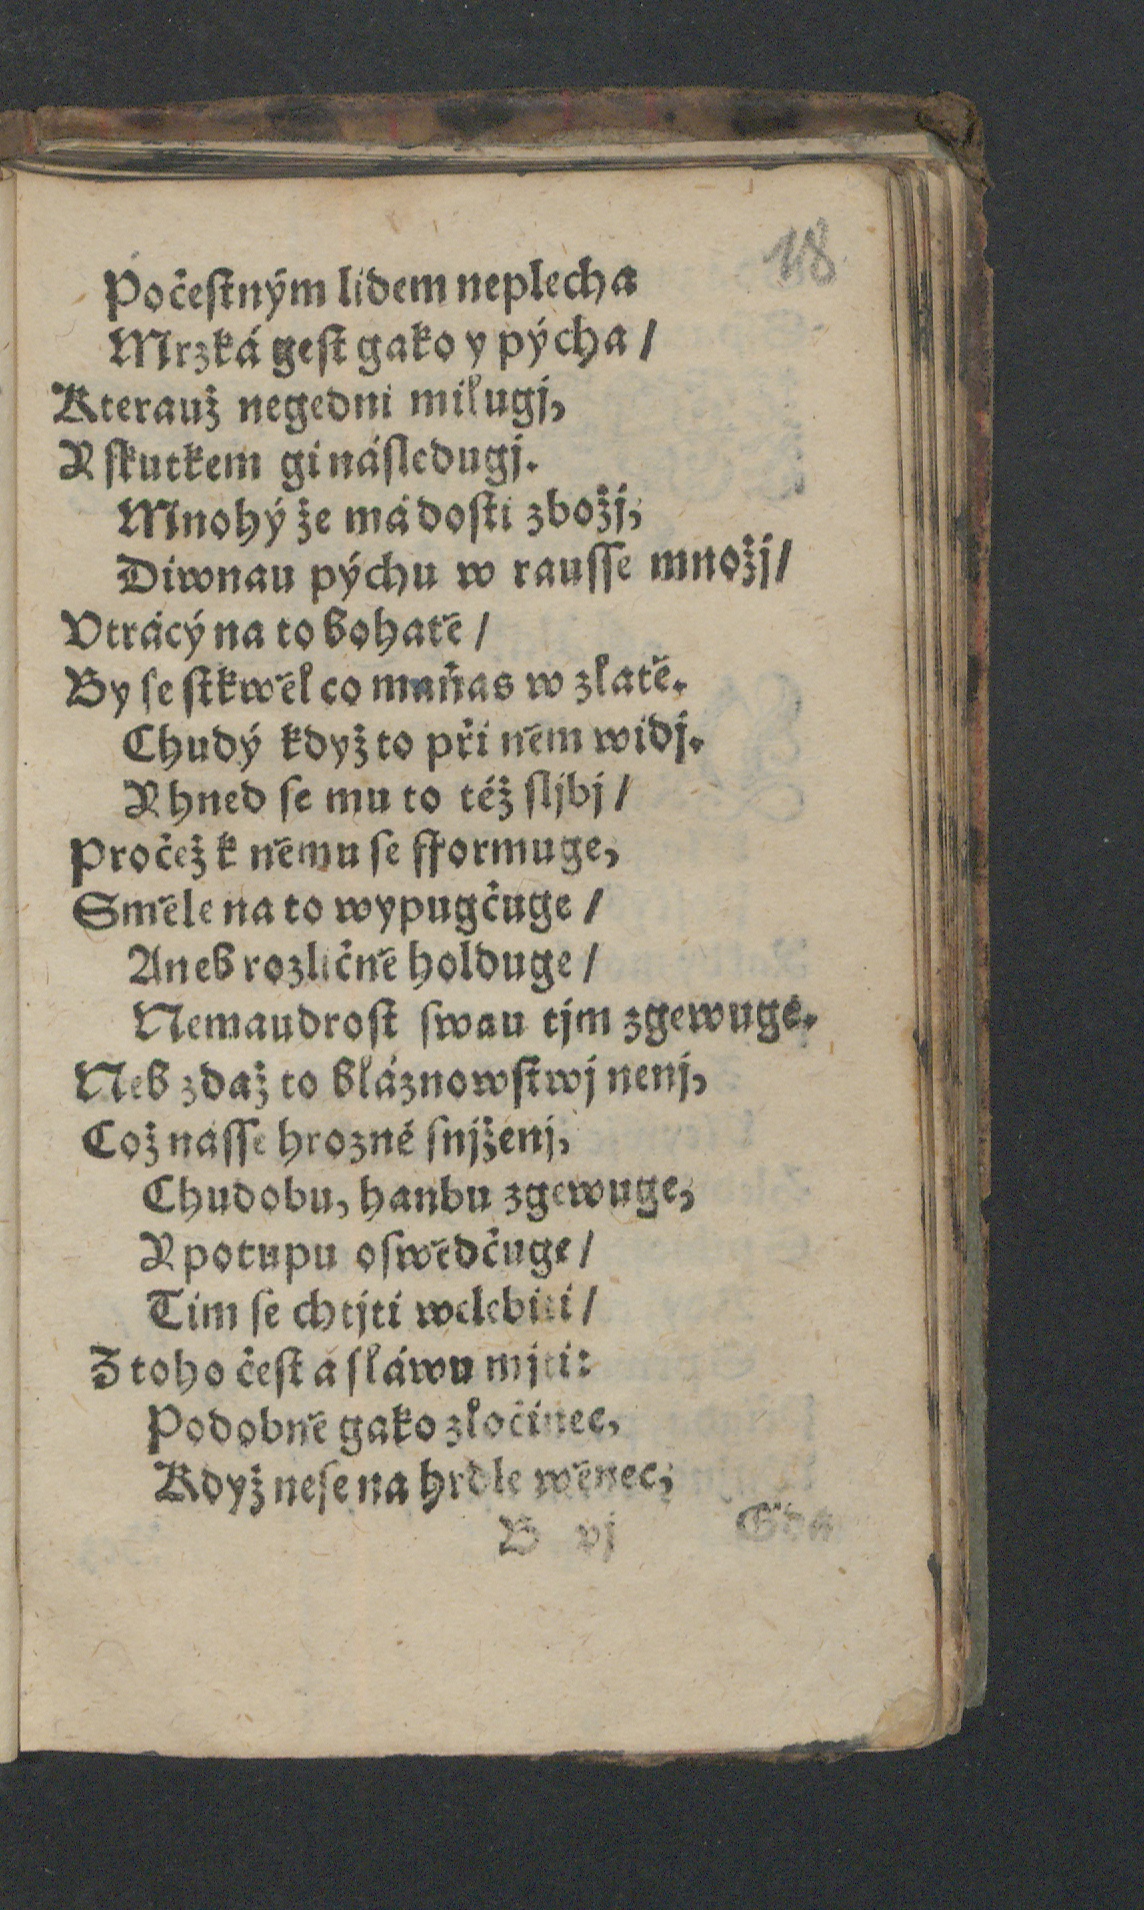 18
Počeſtným lidem neplecha
Mrzká geſt gako y pýcha /
Kterauž negedni milugj,
A ſkutkem gi náſledugj.
Mnohý že má doſti zbožj,
Diwnau pýchu w rauſſe množj /
Vtrácý na to bohatě /
By ſe ſtkwěl co mařias w zlatě.
Chudý když to při něm widj.
A hned ſe mu to též ſljbj /
Pročež k němu ſe fformuge,
Směle na to wypugčuge /
Aneb rozličně holduge /
Nemaudroſt ſwau tjm zgewuge.
Neb zdaž to bláznowſtwj nenj,
Což náſſe hrozné ſnjženj,
Chudobu, hanbu zgewuge,
A potupu oſwědčuge /
Tim ſe chtjti welebiti /
Z toho čeſt a ſláwu mjti:
Podobně gako zločinec,
Když neſe na hrdle wěnec,
B vj Gda